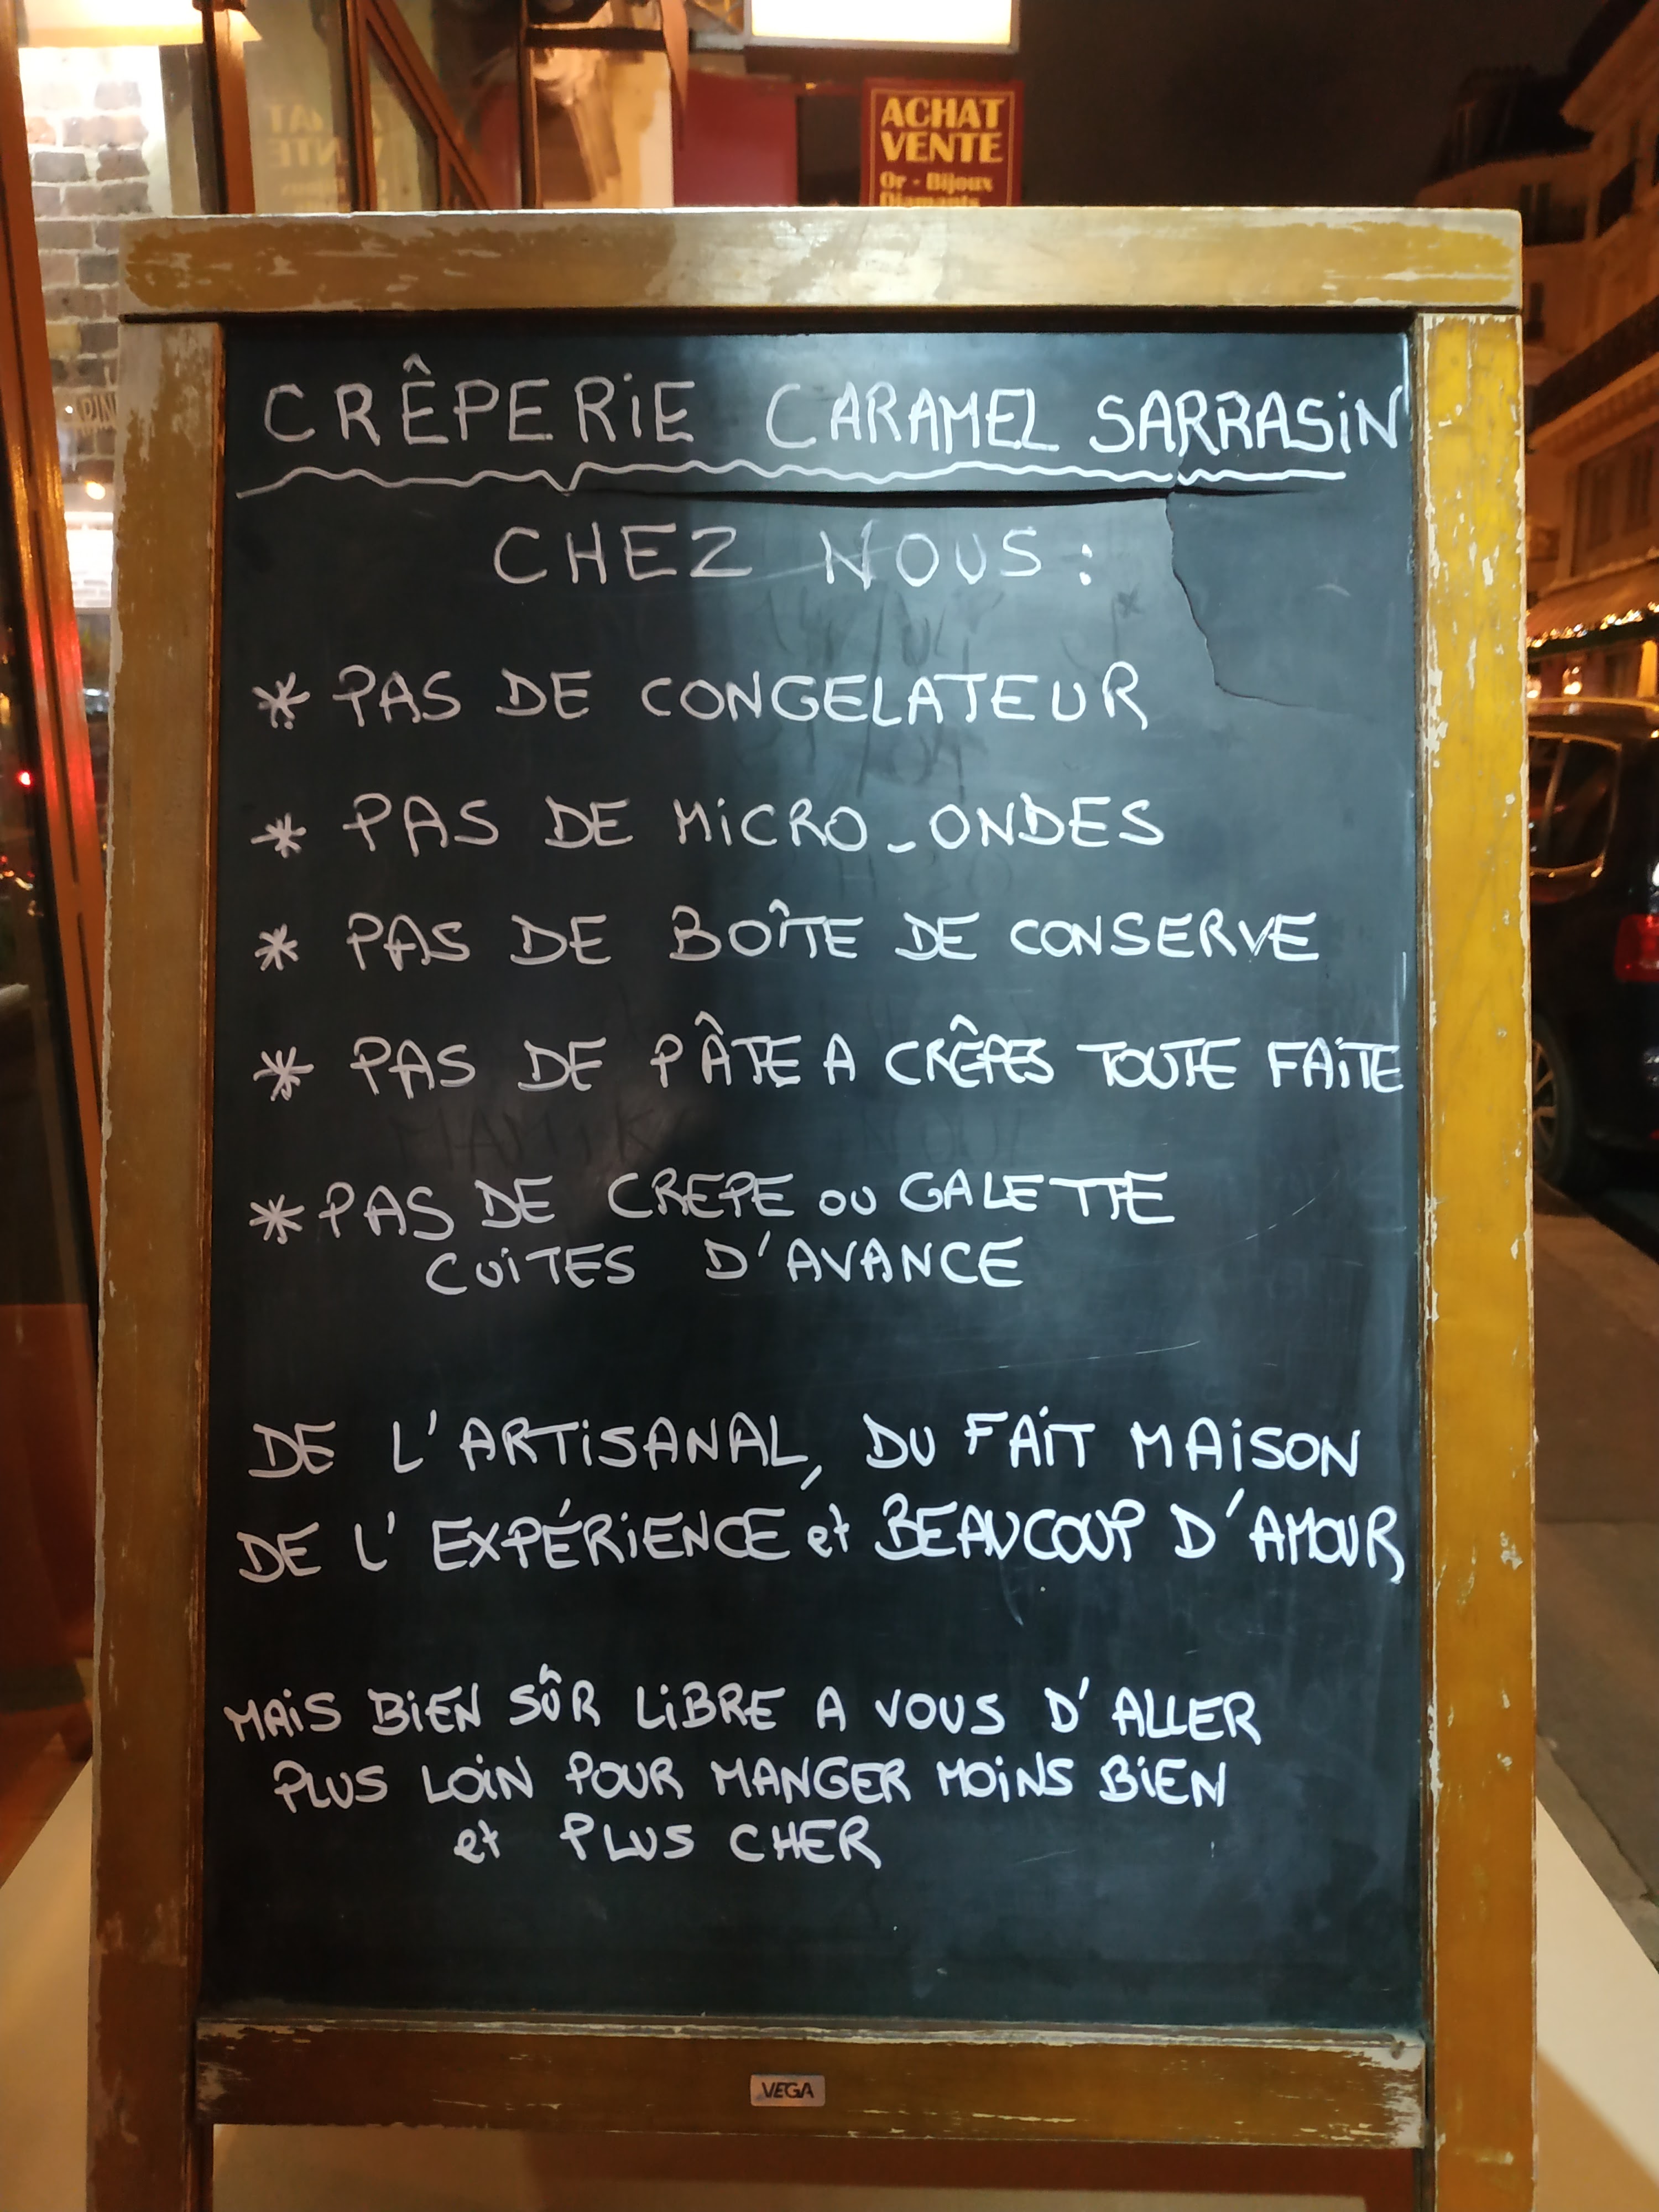 ACHAT
VENTE
Or - Bijoux
Diamants
CRÊPERiE CARAMEL SARRASiN
CHEZ NOUS :
* PAS DE CONGELATEUR
* PAS DE MiCRO-ONDES
* PAS DE BOÎTE DE CONSERVE
* PAS DE PÂTE A CRÊPES TOUTE FAiTE
* PAS DE CREPE OU GALETTE
CUiTES D'AVANCE
DE L'ARTiSANAL, DU FAiT MAiSON
DE L'EXPÉRiENCE et BEAUCOUP D'AMOUR
MAiS BiEN SÛR LiBRE A VOUS D'ALLER
PLUS LOiN POUR MANGER MOiNS BiEN
et PLUS CHER
VEGA